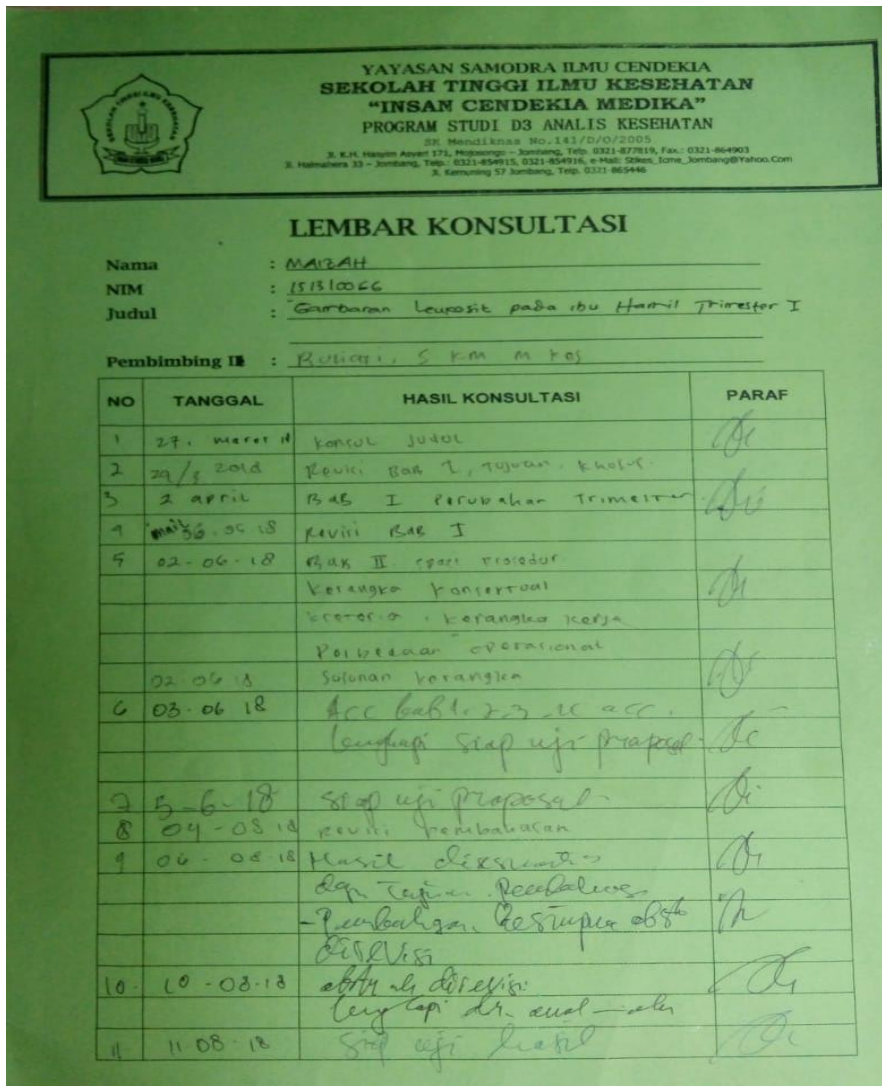 YAYASAN SAMODRA ILMU CENDEKIA
SEKOLAH TINGGI ILMU KESEHATAN
“INSAN CENDEKIA MEDIKA”
PROGRAM STUDI D3 ANALIS KESEHATAN
SK Mendiknas No.141/D/O/2005
Jl. K.H. Hasyim Asyari 171, Mojosongo – Jombang, Telp. 0321-877819, Fax.: 0321-864903
Jl. Halmahera 33 – Jombang, Telp.: 0321-854915, 0321-854916, e-Mail: Stikes_Icme_Jombang@Yahoo.Com
Jl. Kemuning 57 Jombang, Telp. 0321-865446
LEMBAR KONSULTASI
Nama : MAIZAH
NIM : 151310066
Judul : Gambaran Leukosit pada ibu Hamil Trimester I
Pembimbing II : S KM M Kes
NO TANGGAL HASIL KONSULTASI PARAF
1 27. maret Konsul Judul
2 29/3 2018 Revisi Bab I, Tujuan. Khusus.
3 2 april BaB I Perubahan Trimester
4 Revisi BaB I
5 02-06-18 Bab II
Kerangka Konseptual
Kerangka Kerja
operasional
02-06-18 Susunan Kerangka
6 03-06 18 Acc bab 1. 2. 3 acc.
Lengkapi siap uji proposal
7 5-6-18 siap uji proposal
8 04-08 18 Revisi Pembahasan
9 06-08-18 Hasil
dgn Tujuan Pembahasan
direvisi
10. 10-08-18 direvisi
lengkapi
11 11 08-18 Siap uji hasil